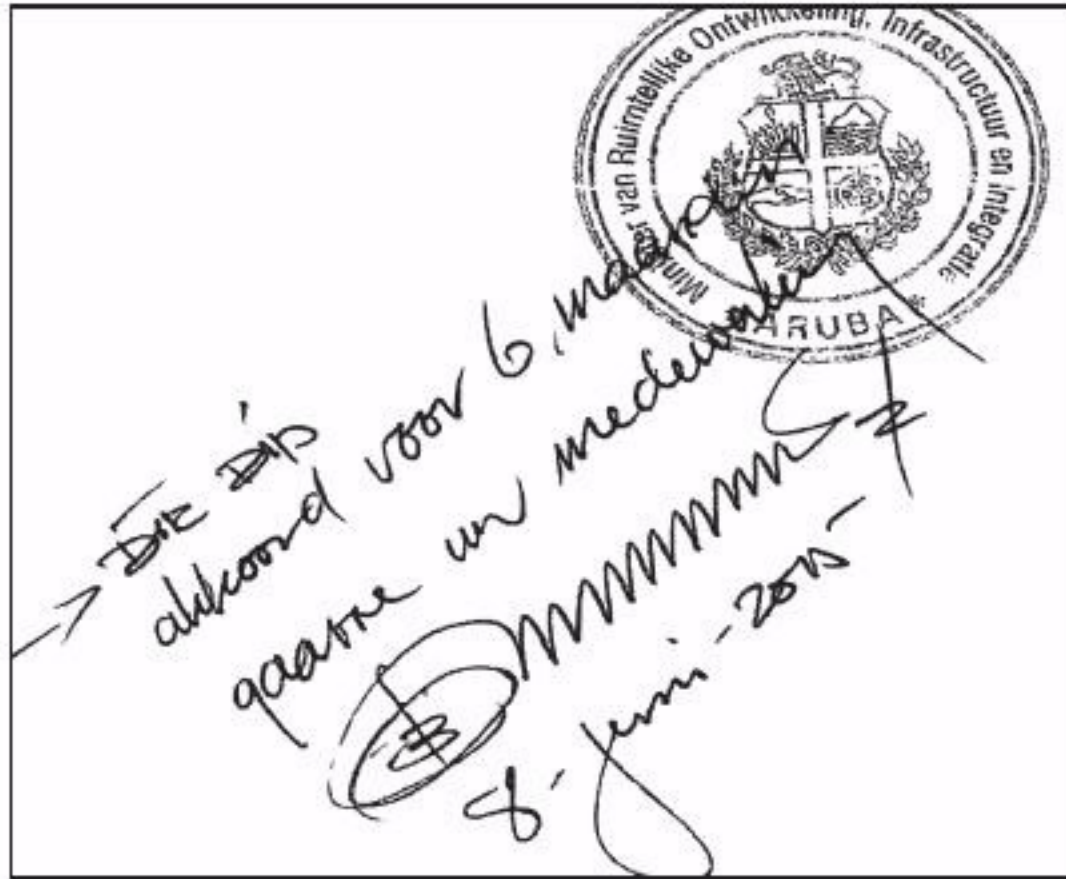 Minister van Ruimtelijke Ontwikkeling, Infrastructuur en Integratie
* ARUBA *
→ DIP
akkoord voor 6 maanden
gaarne uw medewerking
8 - juni - 2015